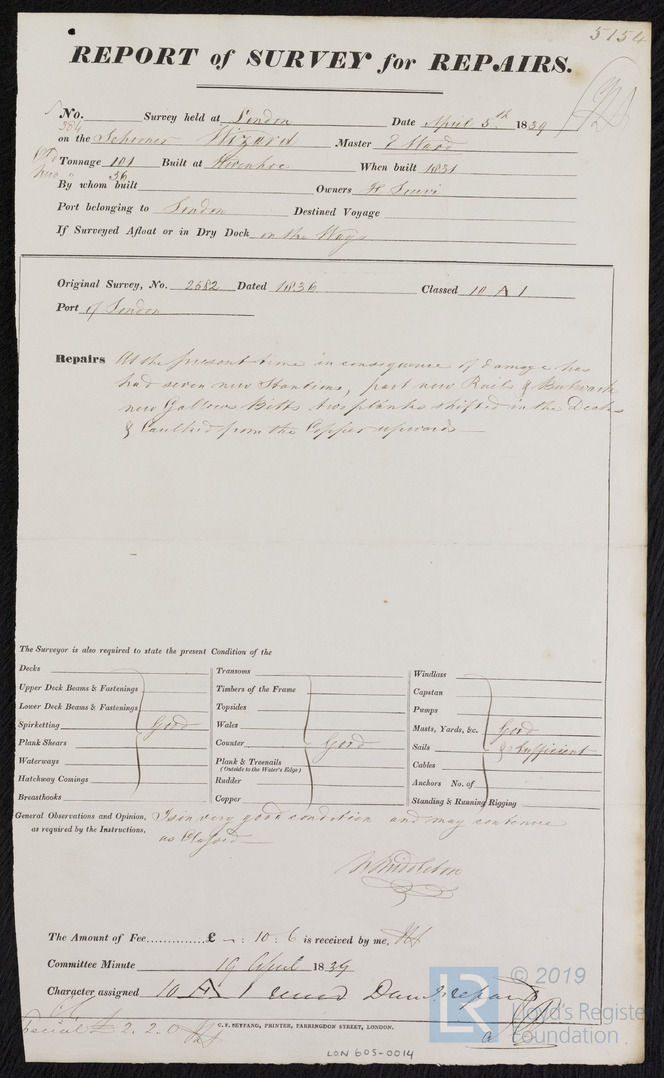 5154
REPORT of SURVEY for REPAIRS.
No. Survey held at London Date April 5th 1839
384
on the Schooner Wizard Master E Ward
Tonnage 101 Built at Wivenhoe When built 1831
36
By whom built Owners
Port belonging to London Destined Voyage
If Surveyed Afloat or in Dry Dock on the Ways
Original Survey, No. 2682 Dated 1836 Classed 10 A 1
Port of London
Repairs At the present time in consequence of damage has
had seven new Stantions, part new Rails & Bulwark
new Gallows Bitts two planks shifted in the Decks
& Caulked from the Copper upwards
The Surveyor is also required to state the present Condition of the
Decks
Upper Deck Beams & Fastenings
Lower Deck Beams & Fastenings
Spirketting Good
Plank Shears
Waterways
Hatchway Comings
Breasthooks
Transoms
Timbers of the Frame
Topsides
Wales
Counter Good
Plank & Treenails
(Outside to the Water's Edge)
Rudder
Copper
Windlass
Capstan
Pumps
Masts, Yards, &c. Good
Sails & Sufficient
Cables
Anchors No. of
Standing & Running Rigging
General Observations and Opinion, Is in very good condition and may continue
as required by the Instructions, as Classed
W Middleton
The Amount of Fee...............£ - : 10 : 6 is received by me,
Committee Minute 19 April 1839
Character assigned 10 A 1 Dam. repairs
Special £ 2. 2. 0
C. F. SEYFANG, PRINTER, FARRINGDON STREET, LONDON.
LON 605-0014
LR
© 2019
Lloyd's Register
Foundation